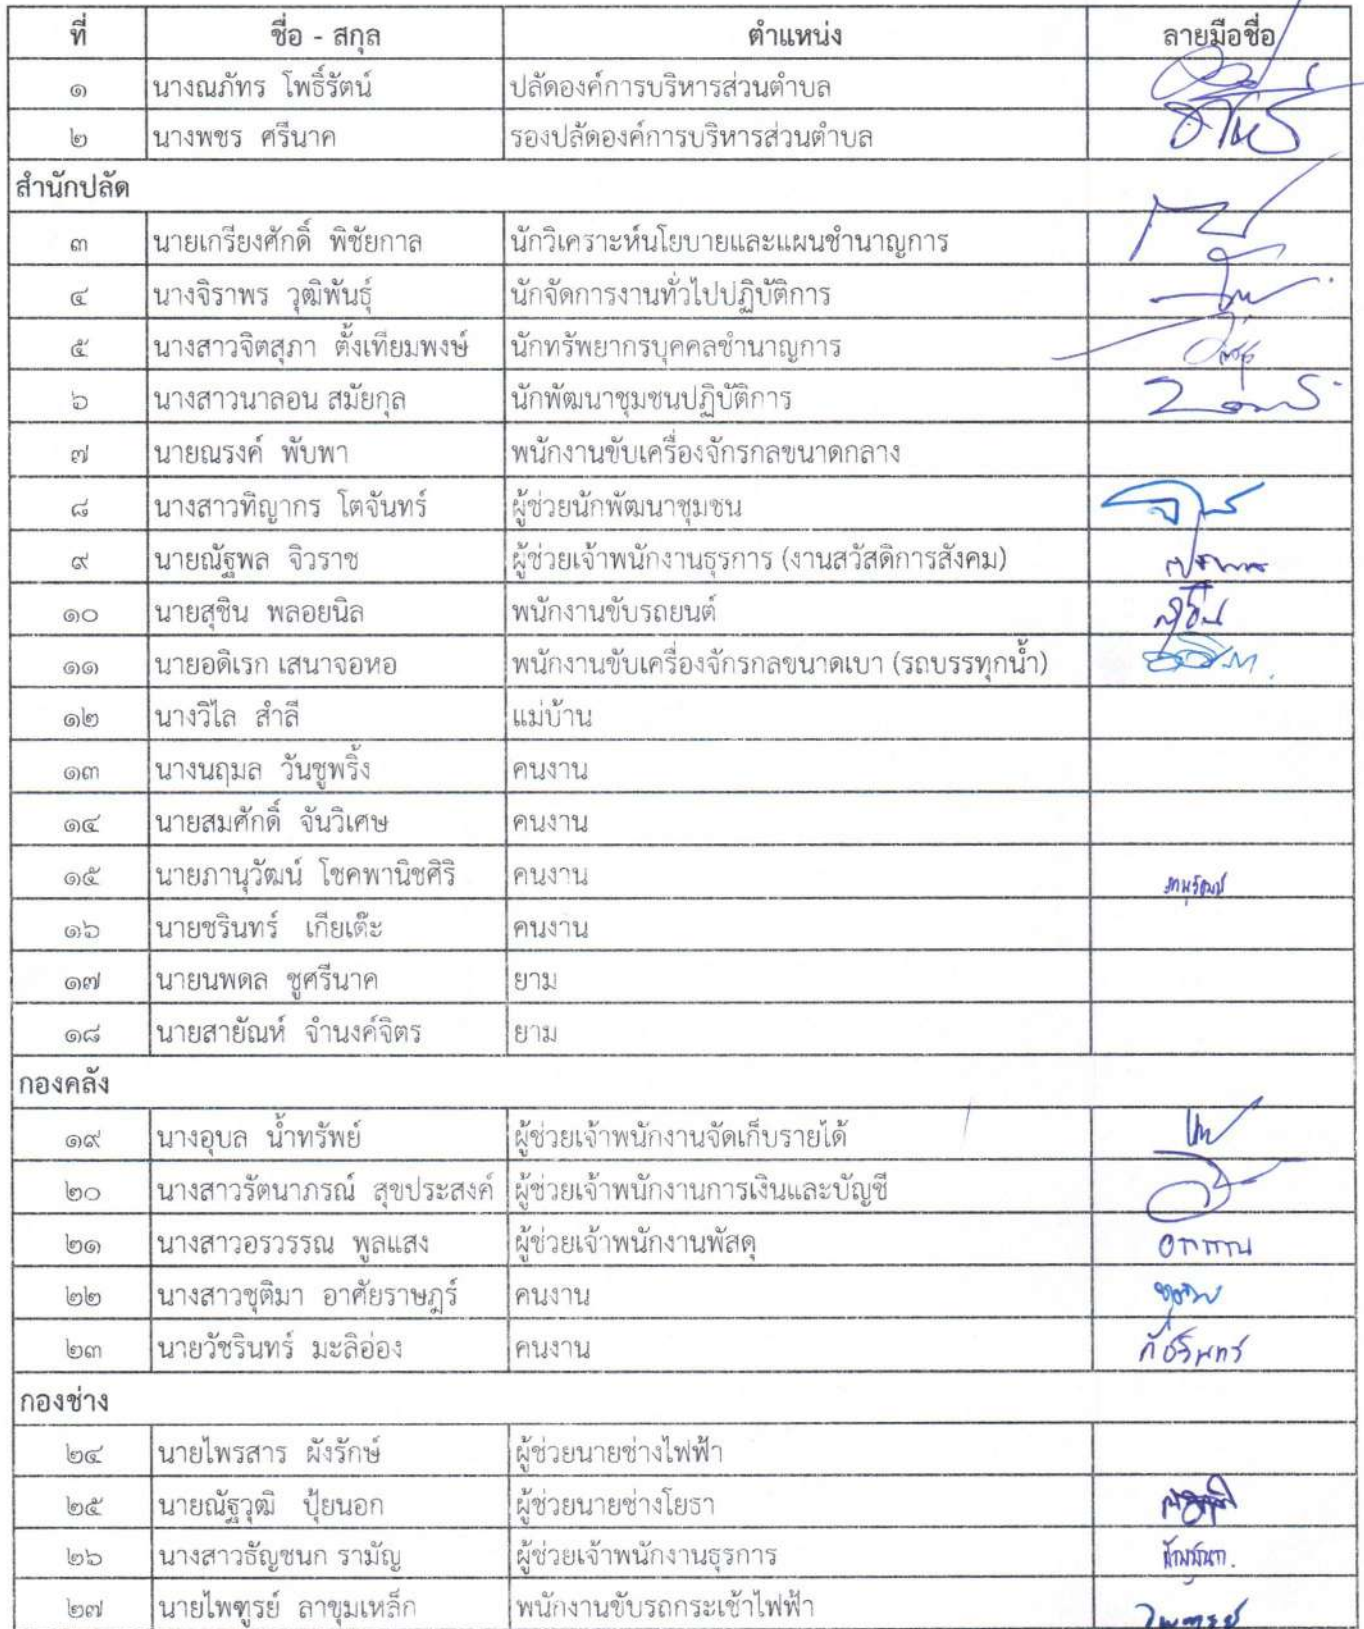 ที่ ชื่อ - สกุล ตำแหน่ง ลายมือชื่อ
๑ นางณภัทร โพธิ์รัตน์ ปลัดองค์การบริหารส่วนตำบล
๒ นางพชร ศรีนาค รองปลัดองค์การบริหารส่วนตำบล
สำนักปลัด
๓ นายเกรียงศักดิ์ พิชัยกาล นักวิเคราะห์นโยบายและแผนชำนาญการ
๔ นางจิราพร วุฒิพันธุ์ นักจัดการงานทั่วไปปฏิบัติการ
๕ นางสาวจิตสุภา ตั้งเทียมพงษ์ นักทรัพยากรบุคคลชำนาญการ
๖ นางสาวนาลอน สมัยกุล นักพัฒนาชุมชนปฏิบัติการ
๗ นายณรงค์ พับพา พนักงานขับเครื่องจักรกลขนาดกลาง
๘ นางสาวทิญากร โตจันทร์ ผู้ช่วยนักพัฒนาชุมชน
๙ นายณัฐพล จิวราช ผู้ช่วยเจ้าพนักงานธุรการ (งานสวัสดิการสังคม)
๑๐ นายสุชิน พลอยนิล พนักงานขับรถยนต์ สุชิน
๑๑ นายอดิเรก เสนาจอหอ พนักงานขับเครื่องจักรกลขนาดเบา (รถบรรทุกน้ำ)
๑๒ นางวิไล สำลี แม่บ้าน
๑๓ นางนฤมล วันชูพริ้ง คนงาน
๑๔ นายสมศักดิ์ จันวิเศษ คนงาน
๑๕ นายภานุวัฒน์ โชคพานิชศิริ คนงาน ภานุวัฒน์
๑๖ นายชรินทร์ เกียเต๊ะ คนงาน
๑๗ นายนพดล ชูศรีนาค ยาม
๑๘ นายสายัณห์ จำนงค์จิตร ยาม
กองคลัง
๑๙ นางอุบล น้ำทรัพย์ ผู้ช่วยเจ้าพนักงานจัดเก็บรายได้
๒๐ นางสาวรัตนาภรณ์ สุขประสงค์ ผู้ช่วยเจ้าพนักงานการเงินและบัญชี
๒๑ นางสาวอรวรรณ พูลแสง ผู้ช่วยเจ้าพนักงานพัสดุ อรวรรณ
๒๒ นางสาวชุติมา อาศัยราษฎร์ คนงาน
๒๓ นายวัชรินทร์ มะลิอ่อง คนงาน วัชรินทร์
กองช่าง
๒๔ นายไพรสาร ผังรักษ์ ผู้ช่วยนายช่างไฟฟ้า
๒๕ นายณัฐวุฒิ ปุ้ยนอก ผู้ช่วยนายช่างโยธา ณัฐวุฒิ
๒๖ นางสาวธัญชนก รามัญ ผู้ช่วยเจ้าพนักงานธุรการ ธัญชนก.
๒๗ นายไพฑูรย์ ลาขุมเหล็ก พนักงานขับรถกระเช้าไฟฟ้า ไพฑูรย์